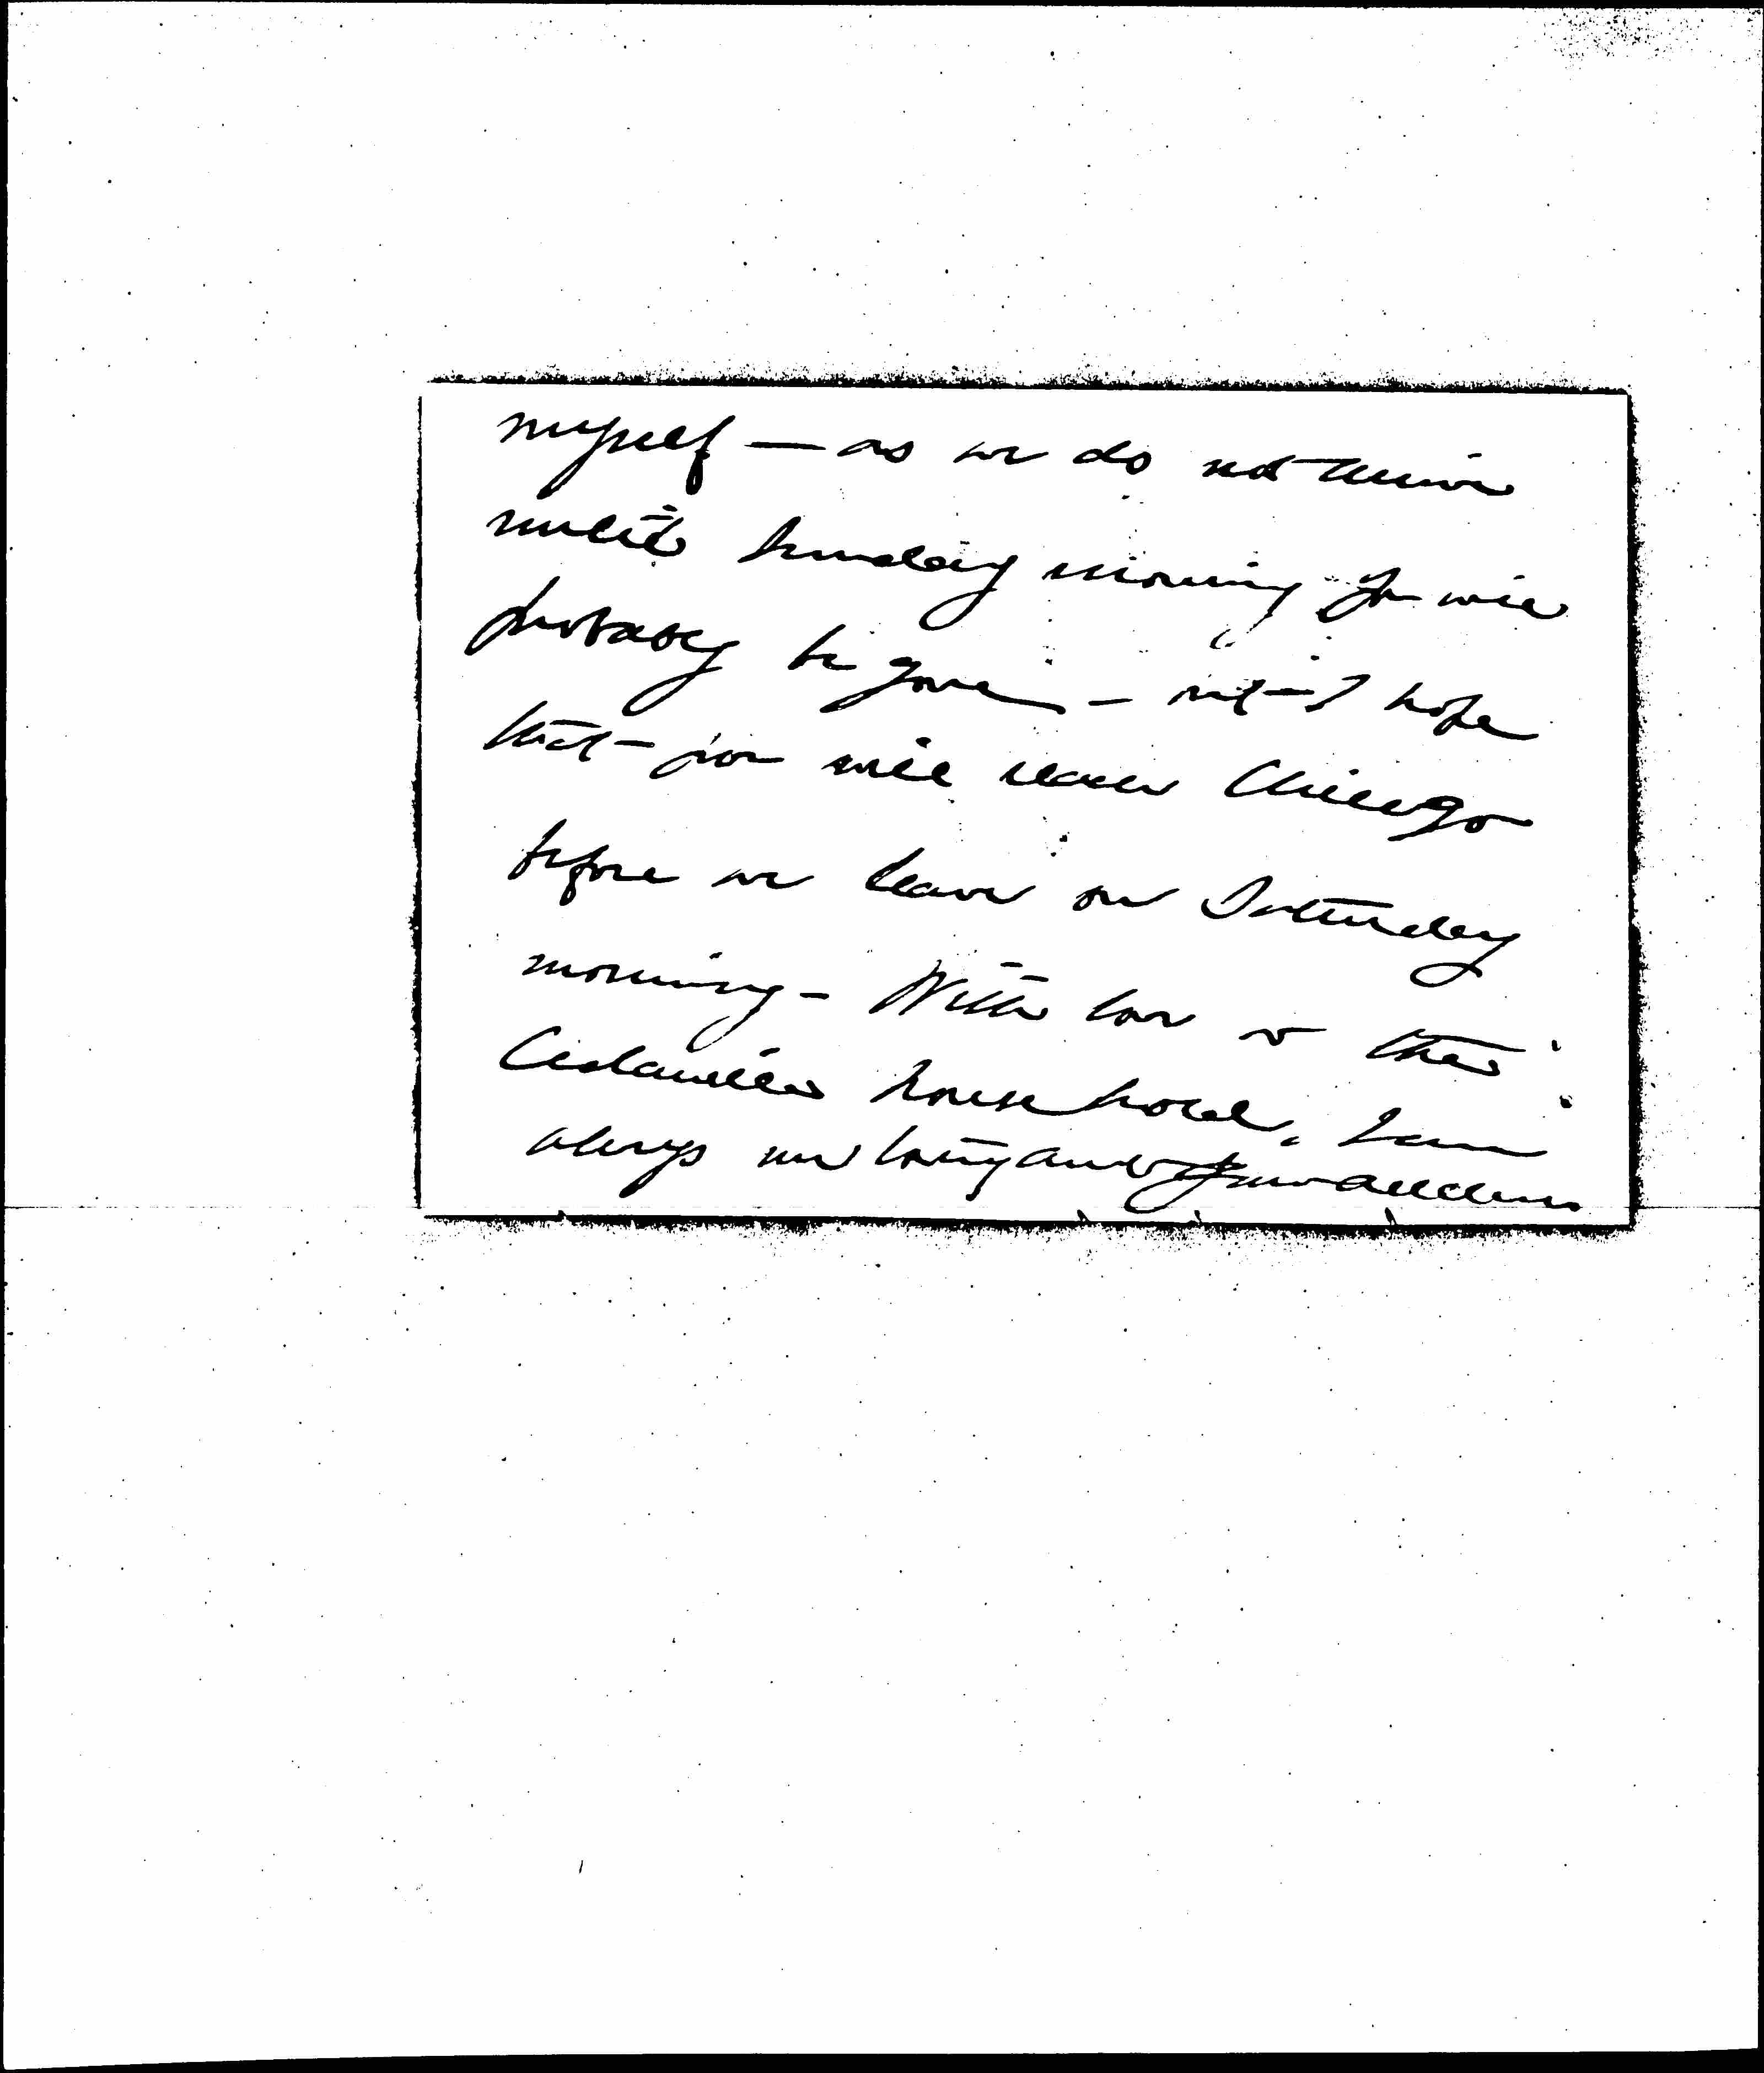 myself — as we do not arrive
until Sunday morning you will
probably be gone — but I hope
that — you will reach Chicago
before we leave on Saturday
morning — With love to the
Cedarville household, I am
always your loving aunt Jane Addams